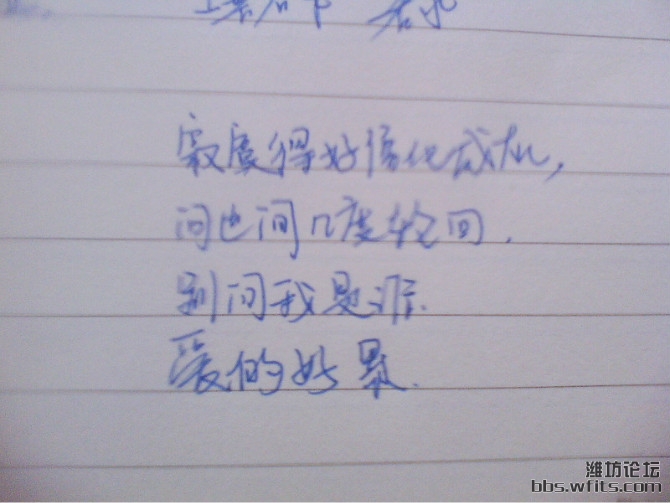 寂寞得好像化成灰，
问世间几度轮回．
别问我是谁．
爱的好累．
潍坊论坛
bbs.wfits.com